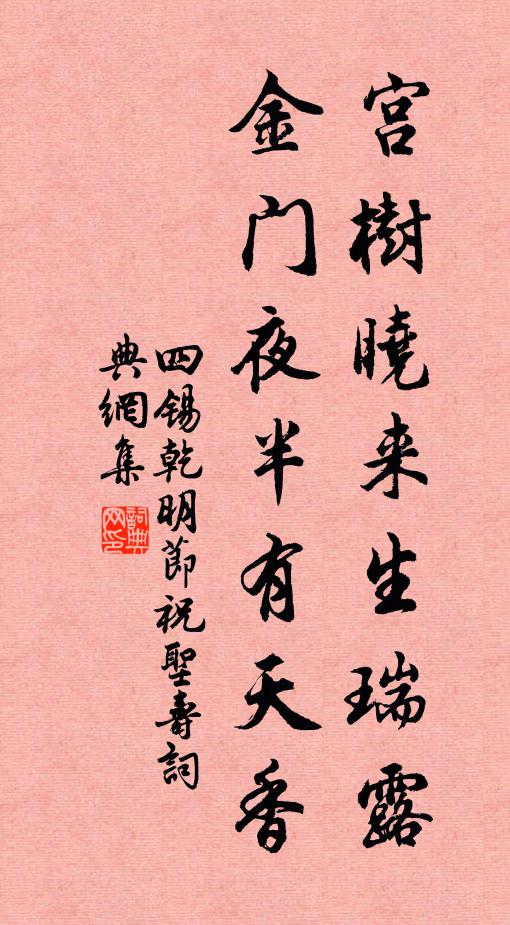 宫樹曉来生瑞露
金门夜半有天香
四錫乾明節祝聖壽詞
典網集
詞典網印